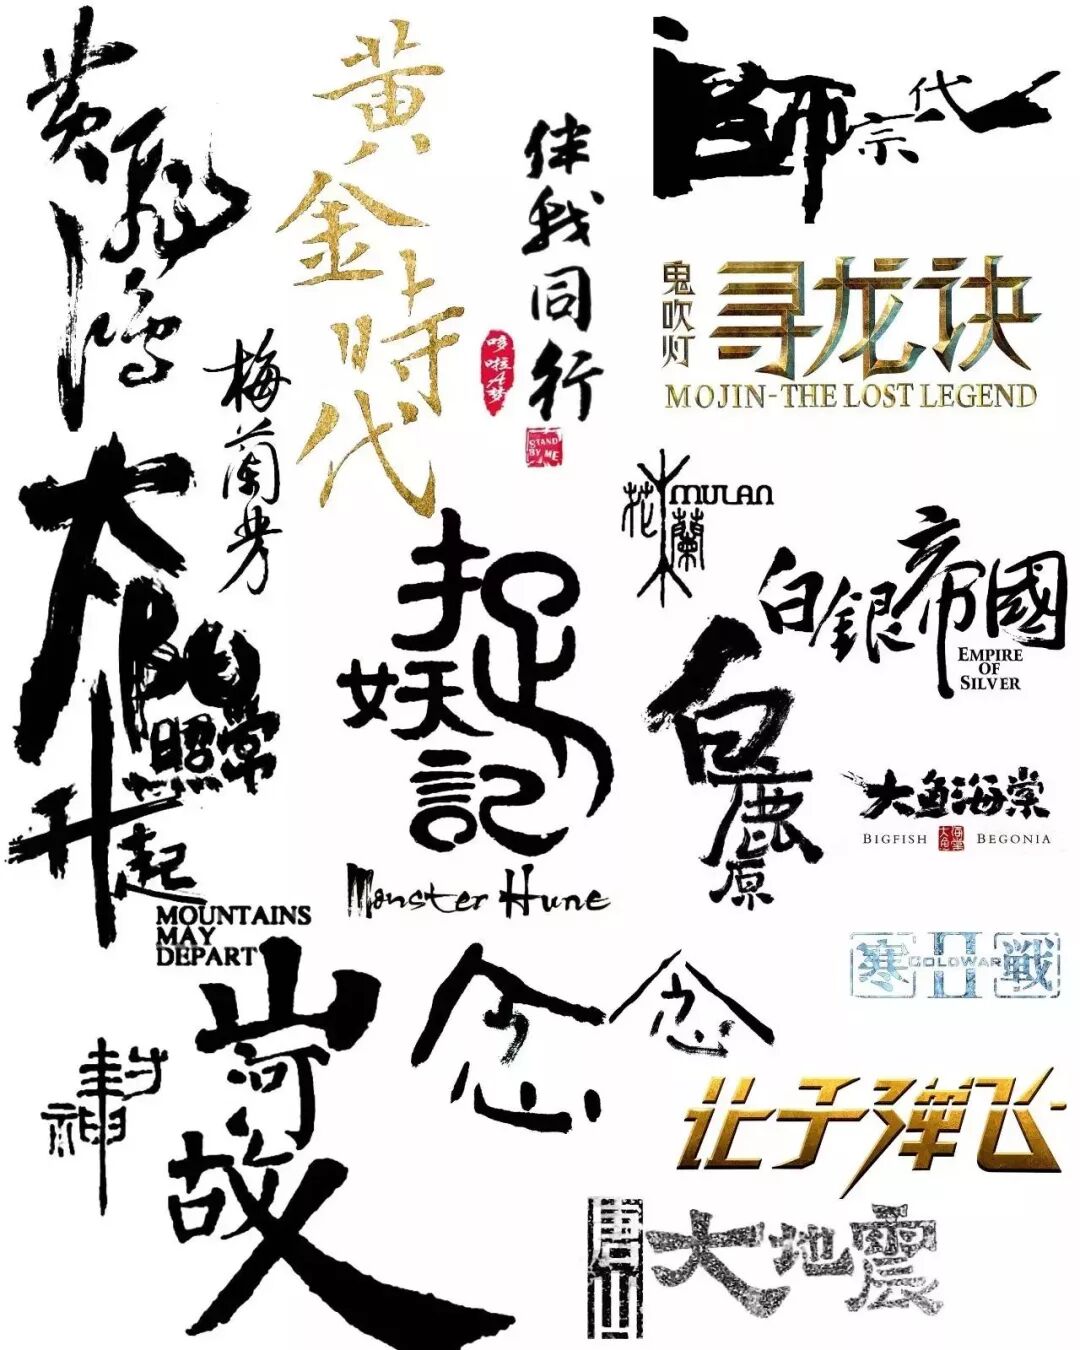 黃飛鴻
黃金時代
伴我同行
哆啦A夢
STAND
BY ME
一代宗師
鬼吹灯
寻龙诀
MOJIN-THE LOST LEGEND
梅蘭芳
花木蘭
MULAN
白銀帝國
EMPIRE
OF
SILVER
太陽照常升起
捉妖記
Monster Hune
白鹿原
大鱼海棠
BIGFISH
大鱼海棠
BEGONIA
MOUNTAINS
MAY
DEPART
山河故人
念念
寒II戰
COLDWAR
封神
让子弹飞
唐山
大地震